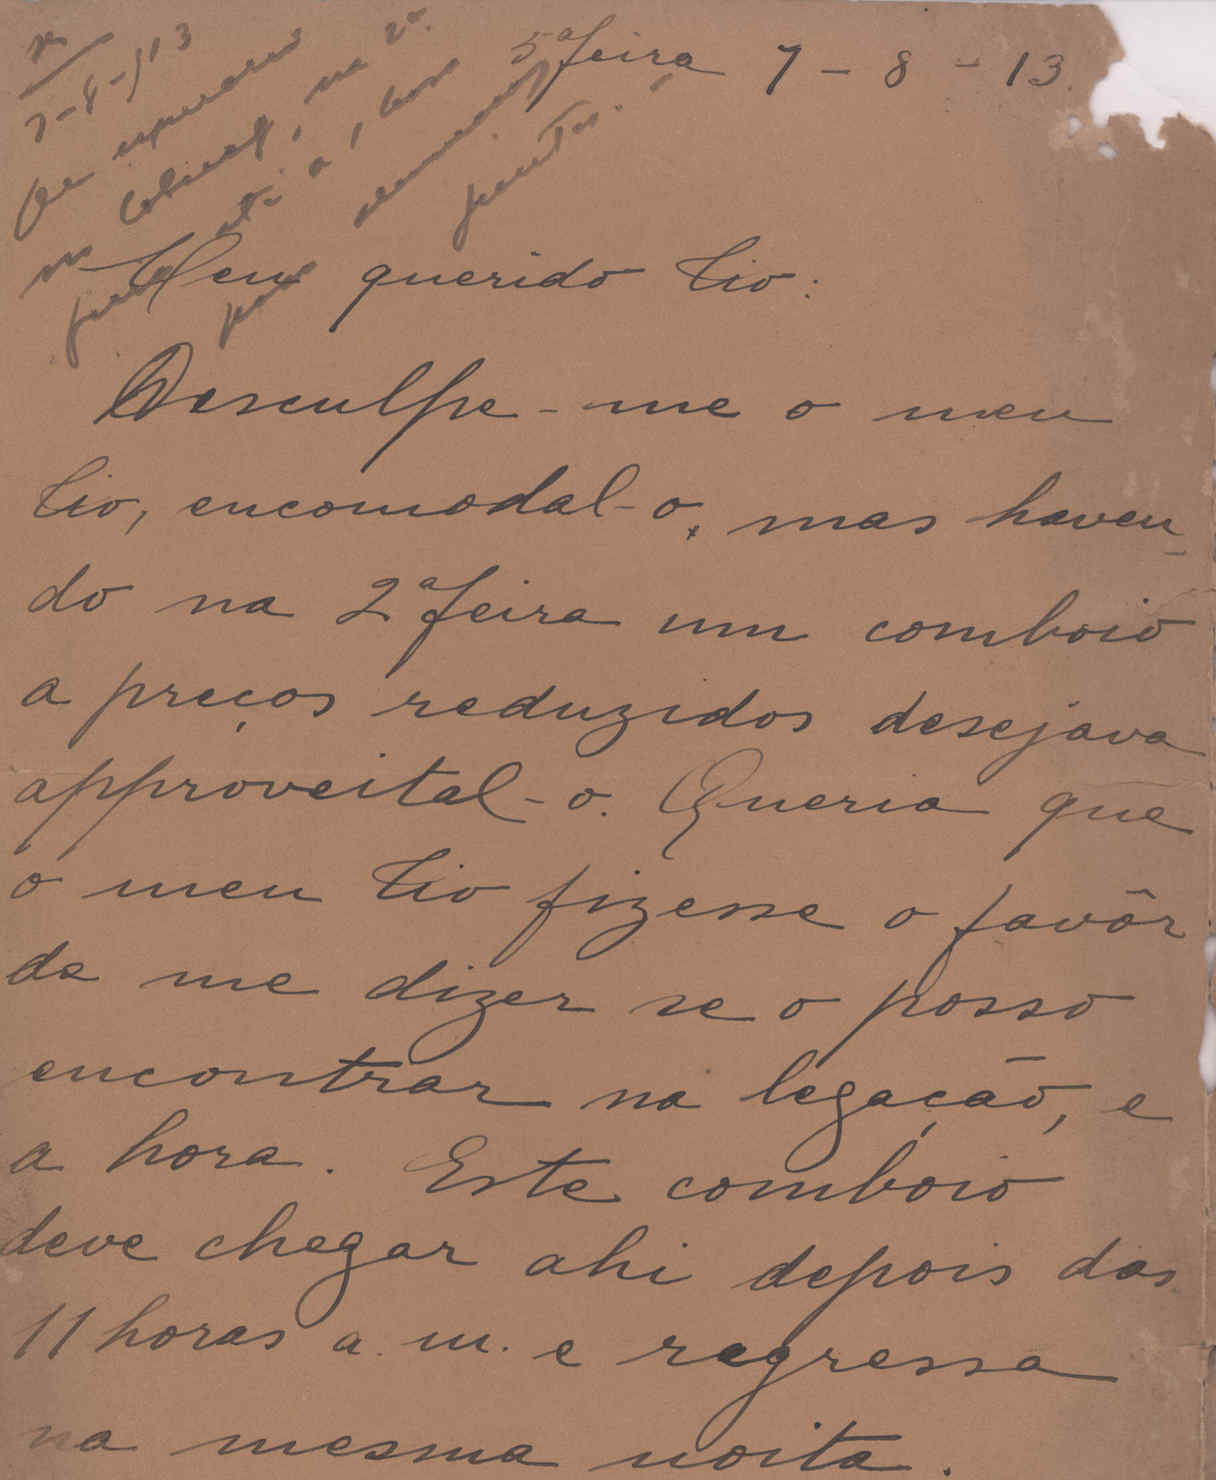 R
7-8-913
Que esperarei
na Legação, na 2ª
feira até a 1, hora
para almoçarmos
juntos.
5ª feira 7-8-13.
Meu querido tio:
Desculpe-me o meu
tio, encomodal-o, mas haven-
do na 2ª feira um comboio
a preços reduzidos desejava
approveital-o. Queria que
o meu tio fizesse o favôr
de me dizer se o posso
encontrar na legação, e
a hora. Este comboio
deve chegar ahi depois das
11 horas a.m. e regressa
na mesma noite.